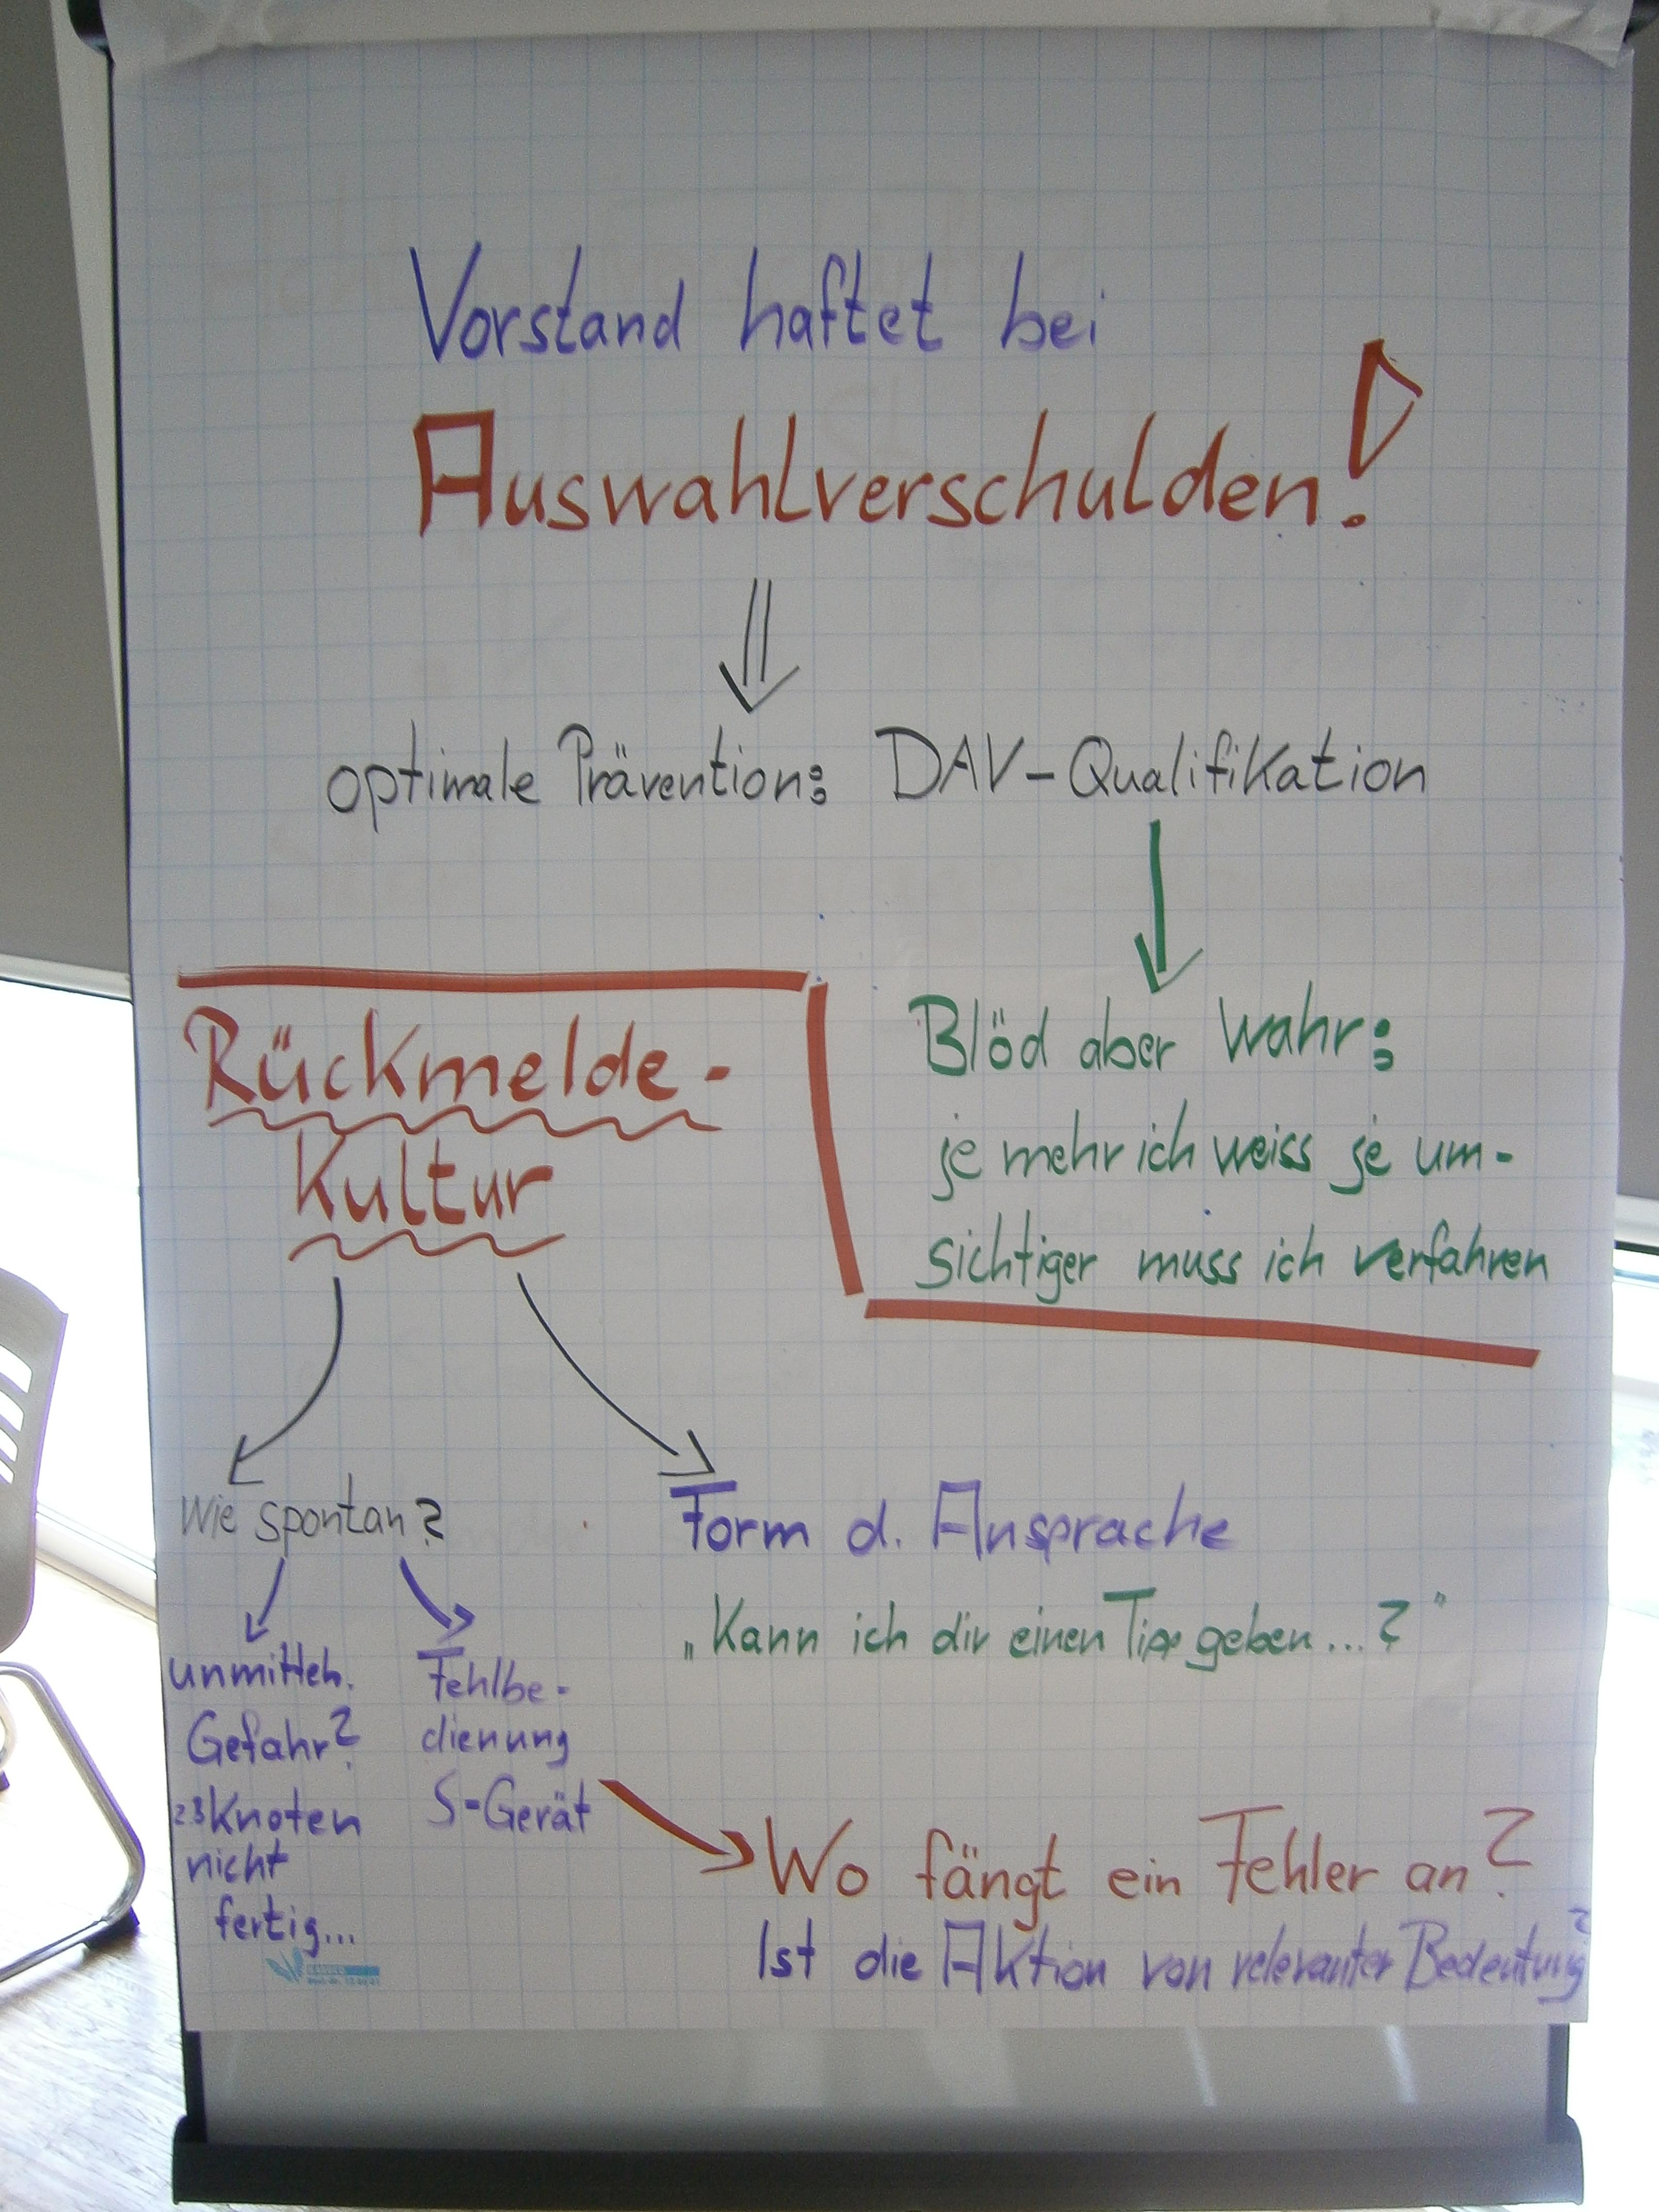 Vorstand haftet bei
Auswahlverschulden!
optimale Prävention: DAV-Qualifikation
Blöd aber wahr:
je mehr ich weiss je um-
sichtiger muss ich verfahren
Rückmelde-
Kultur
Wie spontan?
unmittelb.
Gefahr?
z.B Knoten
nicht
fertig...
Fehlbe-
dienung
S-Gerät
Form d. Ansprache
„Kann ich dir einen Tip geben...?"
Wo fängt ein Fehler an?
Ist die Aktion von relevanter Bedeutung?